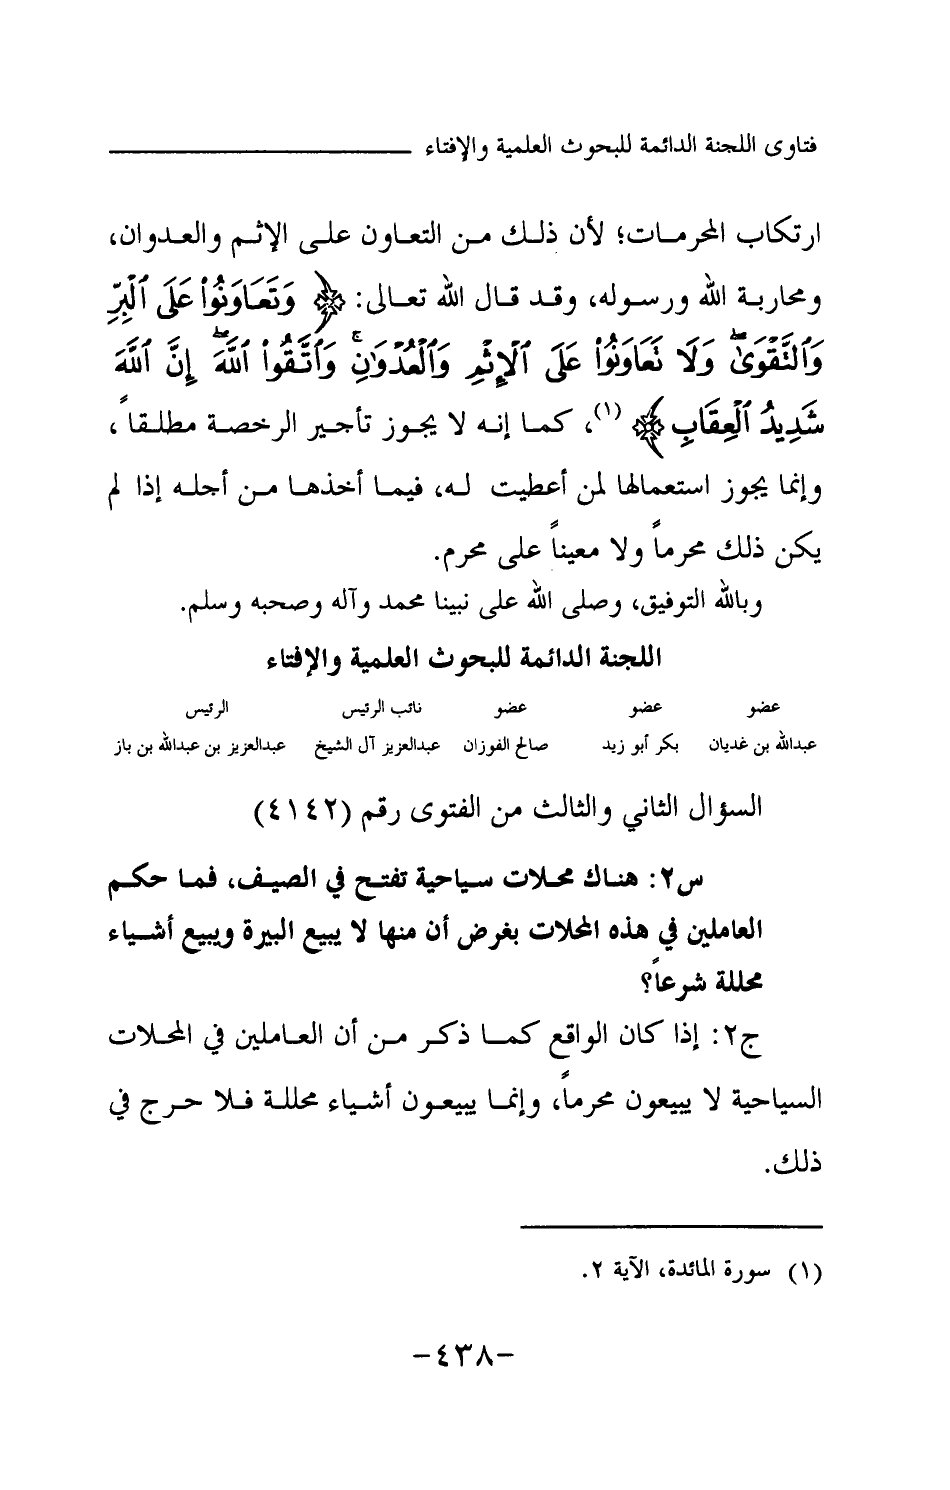 فتاوى اللجنة الدائمة للبحوث العلمية والإفتاء
ارتكاب المحرمات؛ لأن ذلك من التعاون على الإثم والعدوان،
ومحاربة الله ورسوله، وقد قال الله تعالى: ﴿ وَتَعَاوَنُوا۟ عَلَى ٱلْبِرِّ
وَٱلتَّقْوَىٰ ۖ وَلَا تَعَاوَنُوا۟ عَلَى ٱلْإِثْمِ وَٱلْعُدْوَٰنِ ۚ وَٱتَّقُوا۟ ٱللَّهَ ۖ إِنَّ ٱللَّهَ
شَدِيدُ ٱلْعِقَابِ ﴾ (١)، كما إنه لا يجوز تأجير الرخصة مطلقاً،
وإنما يجوز استعمالها لمن أعطيت له، فيما أخذها من أجله إذا لم
يكن ذلك محرماً ولا معيناً على محرم.
وبالله التوفيق، وصلى الله على نبينا محمد وآله وصحبه وسلم.
اللجنة الدائمة للبحوث العلمية والإفتاء
عضو عضو عضو نائب الرئيس الرئيس
عبدالله بن غديان بكر أبو زيد صالح الفوزان عبدالعزيز آل الشيخ عبدالعزيز بن عبدالله بن باز
السؤال الثاني والثالث من الفتوى رقم (٤١٤٢)
س٢: هناك محلات سياحية تفتح في الصيف، فما حكم
العاملين في هذه المحلات بغرض أن منها لا يبيع البيرة ويبيع أشياء
محللة شرعاً؟
ج٢: إذا كان الواقع كما ذكر من أن العاملين في المحلات
السياحية لا يبيعون محرماً، وإنما يبيعون أشياء محللة فلا حرج في
ذلك.
(١) سورة المائدة، الآية ٢.
-٤٣٨-